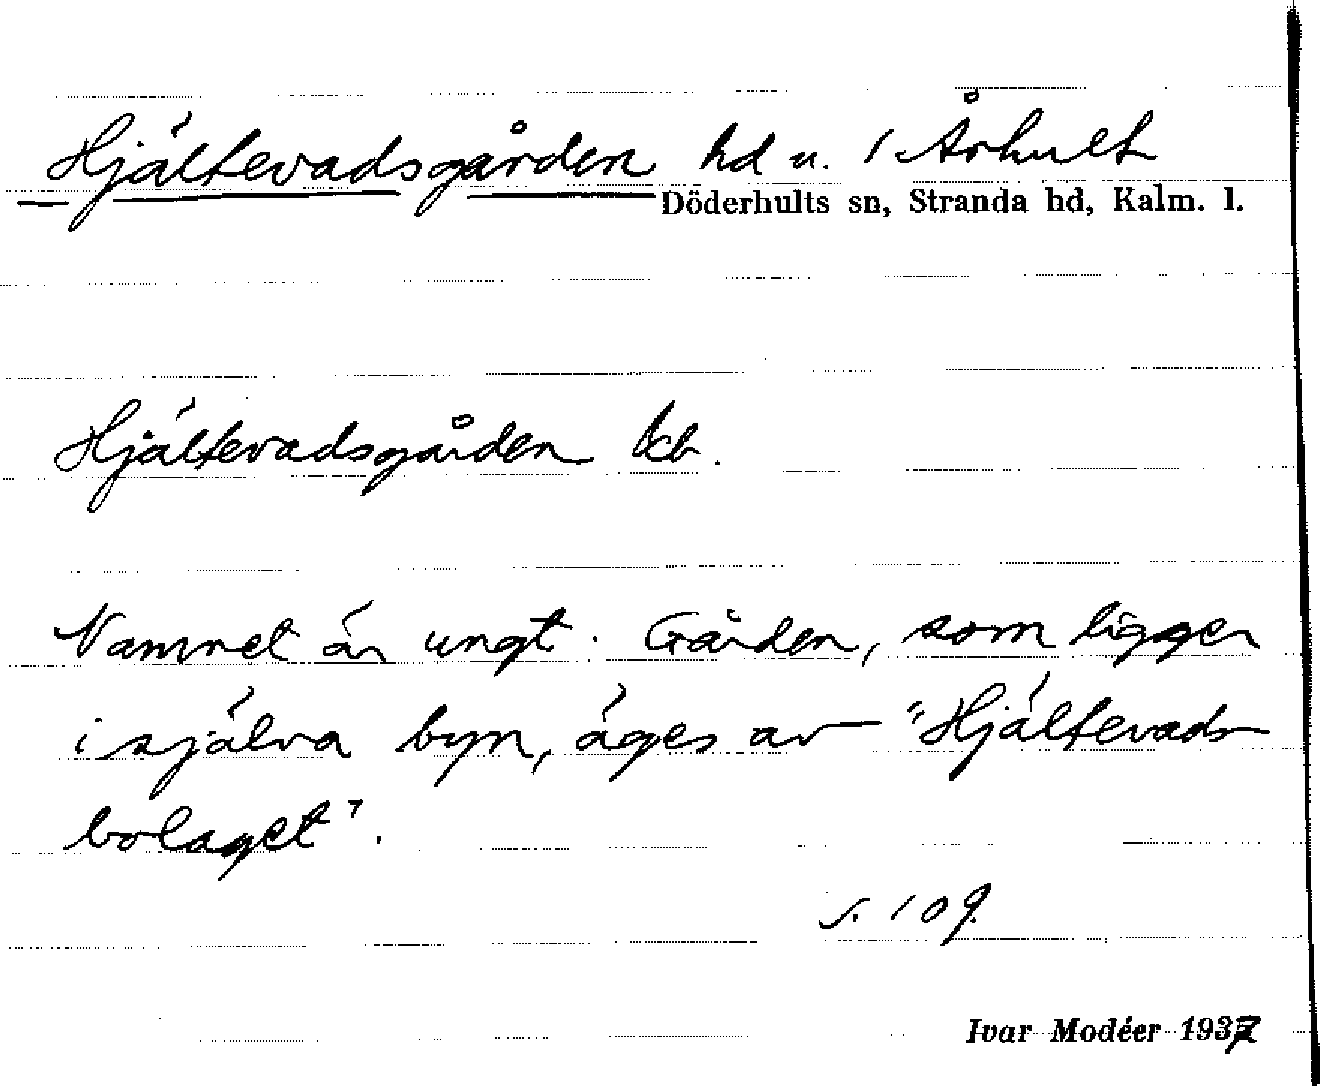 Hjältevadsgården hd u. 1 Århult
Döderhults sn, Stranda hd, Kalm. l.
Hjältevadsgården kb.
Namnet är ungt. Gården, som ligger
i själva byn, äges av "Hjältevads
bolaget".
s. 109.
Ivar Modéer 1937